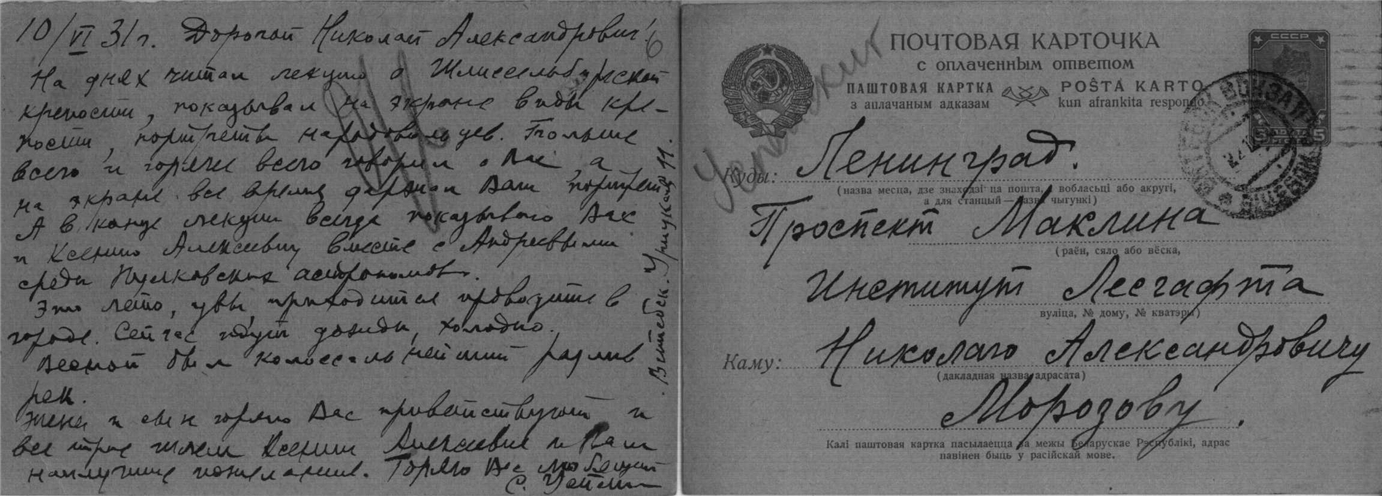 10/VI 31 г. Дорогой Николай Александрович!
На днях читал лекцию о Шлиссельбургской
крепости, показывал на экране виды кре-
пости, портреты народовольцев. Больше
всего и горячее всего говорил о Вас, а
на экране все время держал Ваш портрет.
А в конце лекции всегда показываю Вас
и Ксению Алексеевну вместе с Андреевыми
среди Пулковских астрономов.
Это лето, увы, приходится проводить в
городе. Сейчас идут дожди, холодно.
Весной был колоссальнейший разлив
рек.
Жена и сын горячо Вас приветствуют и
все трое шлем Ксении Алексеевне и Вам
наилучшие пожелания. Горячо Вас любящий
С.
Витебск.
11.
6
ПОЧТОВАЯ КАРТОЧКА
с оплаченным ответом
ПАШТОВАЯ КАРТКА
з аплачаным адказам
POŜTA KARTO
kun afrankita respondo
СССР
5
5
Куды: Ленинград.
(назва месца, дзе знаходзіцца пошта, вобласьці або акругі,
а для станцый—назва чыгункі)
Проспект Маклина
(раён, сяло або вёска,
Институт Лесгафта
вуліца, № дому, № кватэры)
Каму: Николаю Александровичу
(дакладная назва адрасата)
Морозову.
Калі паштовая картка пасылаецца за межы Беларускае Рэспублікі, адрас
павінен быць у расійскай мове.